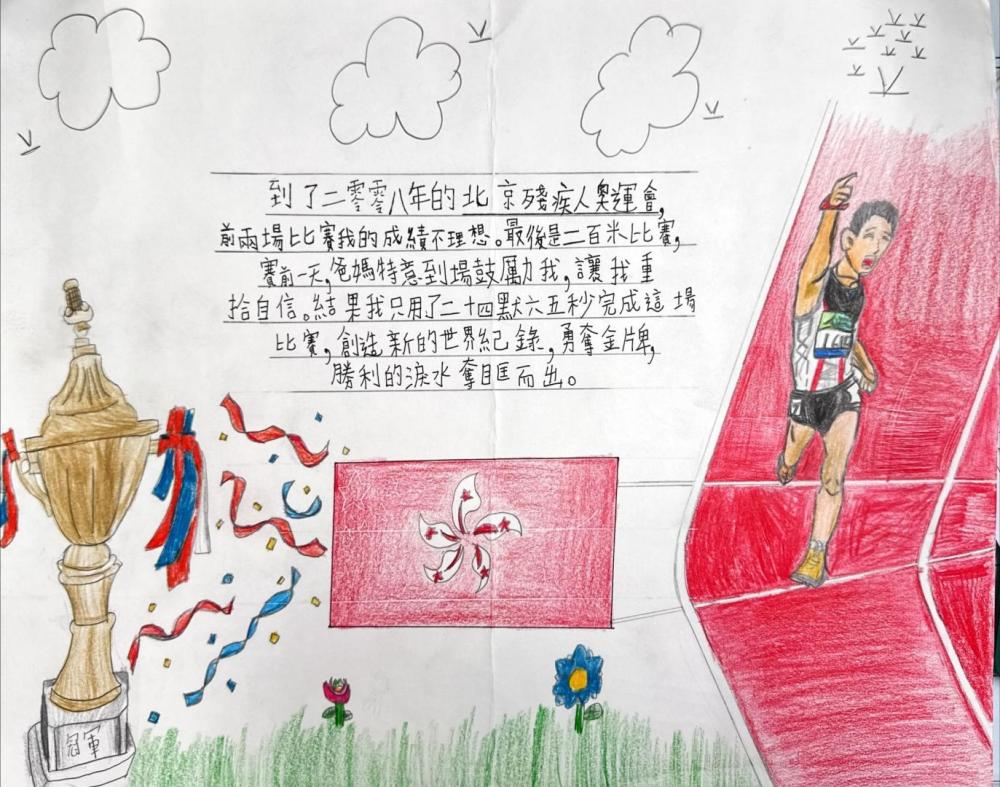 到了二零零八年的北京殘疾人奧運會，
前兩場比賽我的成績不理想。最後是二百米比賽，
賽前一天，爸媽特意到場鼓勵我，讓我重
拾自信。結果我只用了二十四默六五秒完成這場
比賽，創造新的世界紀錄，勇奪金牌，
勝利的淚水奪眶而出。
冠軍